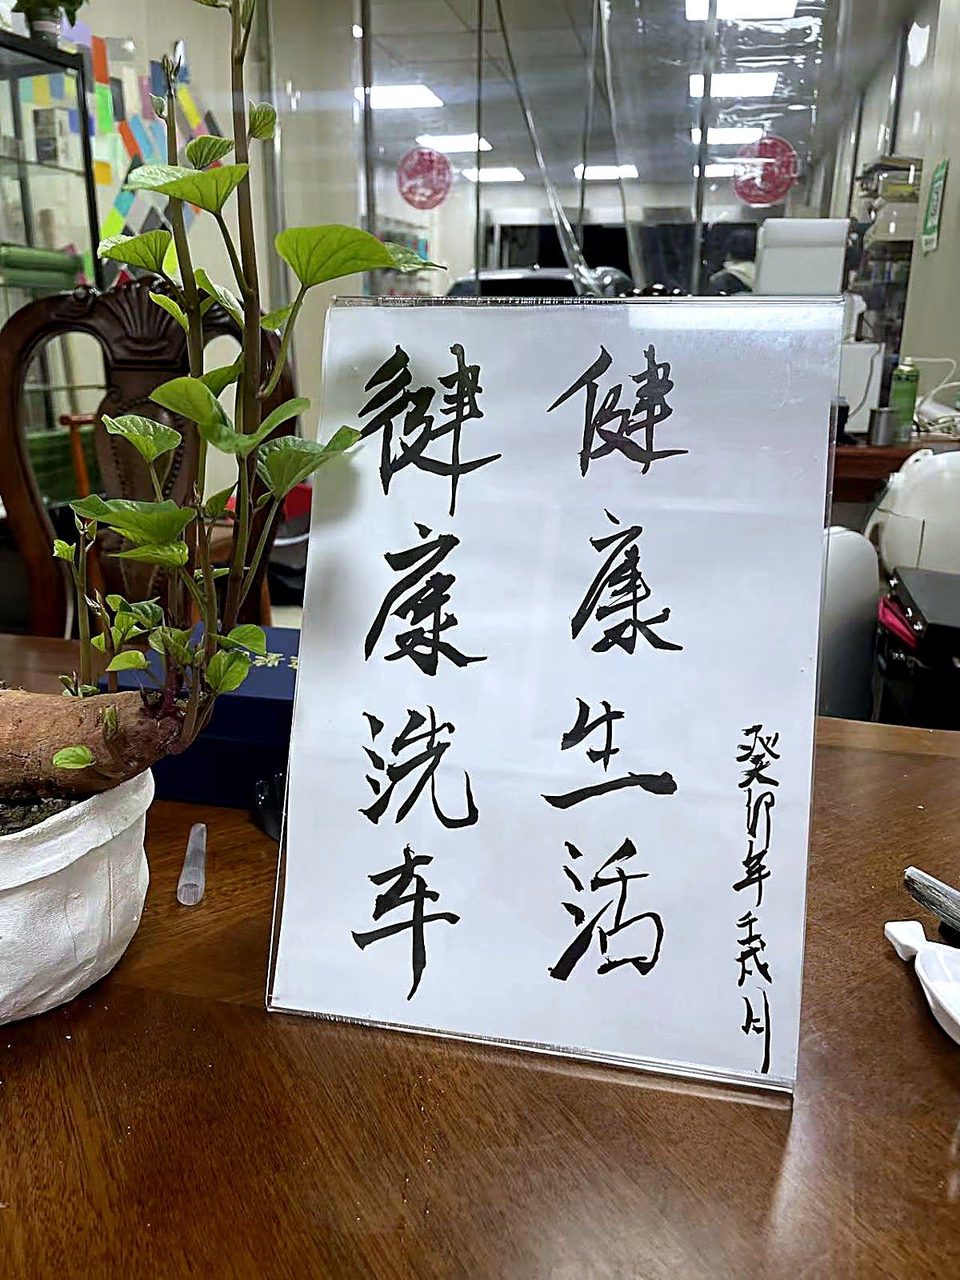 健康生活
健康洗车
癸卯年壬戌月